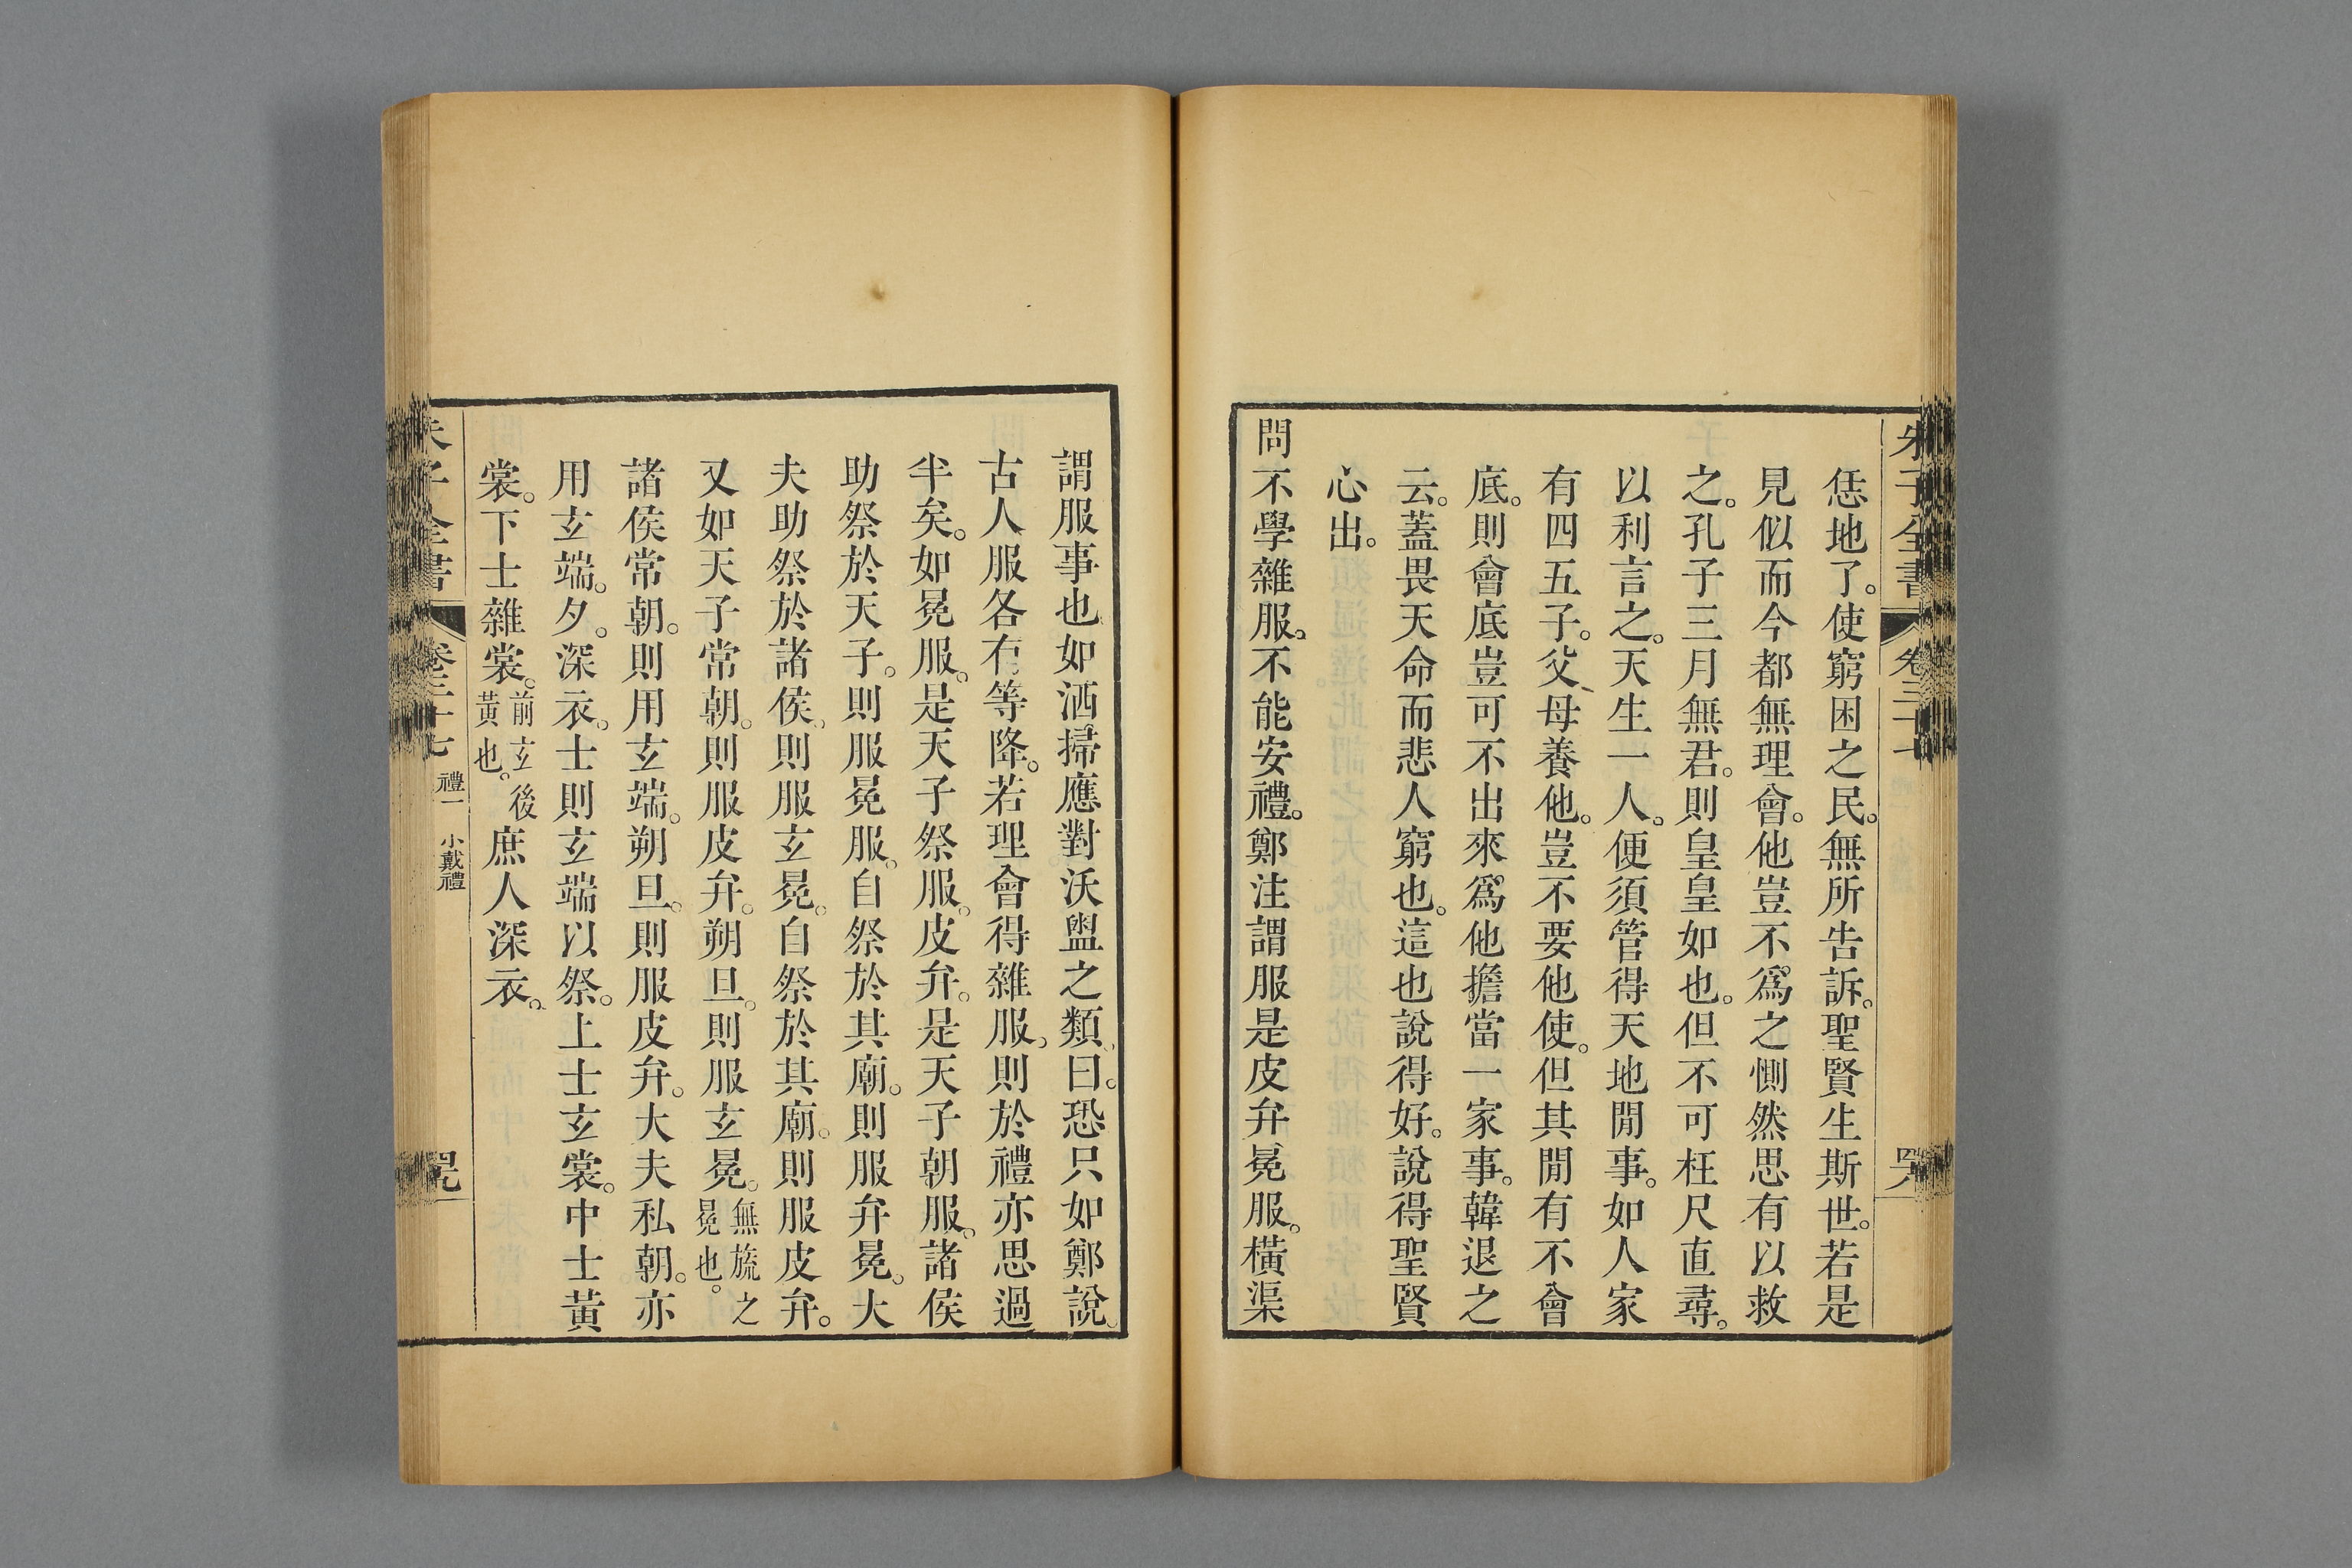 恁地了。使窮困之民。無所告訴。聖賢生斯世。若是
見似而今都無理會。他豈不爲之惻然思有以救
之。孔子三月無君。則皇皇如也。但不可枉尺直尋。
以利言之。天生一人。便須管得天地閒事。如人家
有四五子。父母養他。豈不要他使。但其閒有不會
底。則會底豈可不出來爲他擔當一家事。韓退之
云。蓋畏天命而悲人窮也。這也說得好。說得聖賢
心出。
問不學雜服。不能安禮。鄭注謂服是皮弁冕服。橫渠
謂服事也。如洒掃應對沃盥之類。曰。恐只如鄭說。
古人服各有等降。若理會得雜服。則於禮亦思過
半矣。如冕服。是天子祭服。皮弁。是天子朝服。諸侯
助祭於天子。則服冕服。自祭於其廟。則服弁冕。大
夫助祭於諸侯。則服玄冕。自祭於其廟。則服皮弁。
又如天子常朝。則服皮弁。朔旦。則服玄冕。無旒之冕也。
諸侯常朝。則用玄端。朔旦。則服皮弁。大夫私朝。亦
用玄端。夕。深衣。士則玄端以祭。上士玄裳。中士黃
裳。下士雜裳。前玄後黃也。庶人深衣。
朱子全書
卷三十七
禮一 小戴禮